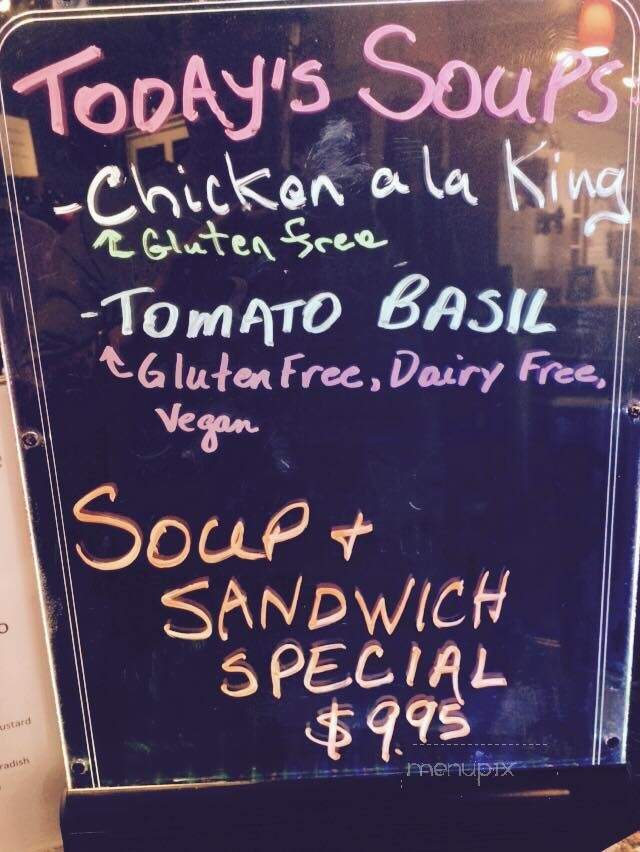 TODAY'S SOUPS
-Chicken a la King
Gluten free
-TOMATO BASIL
Gluten Free, Dairy Free,
Vegan
SOUP +
SANDWICH
SPECIAL
$9.95
menupix
ustard
radish